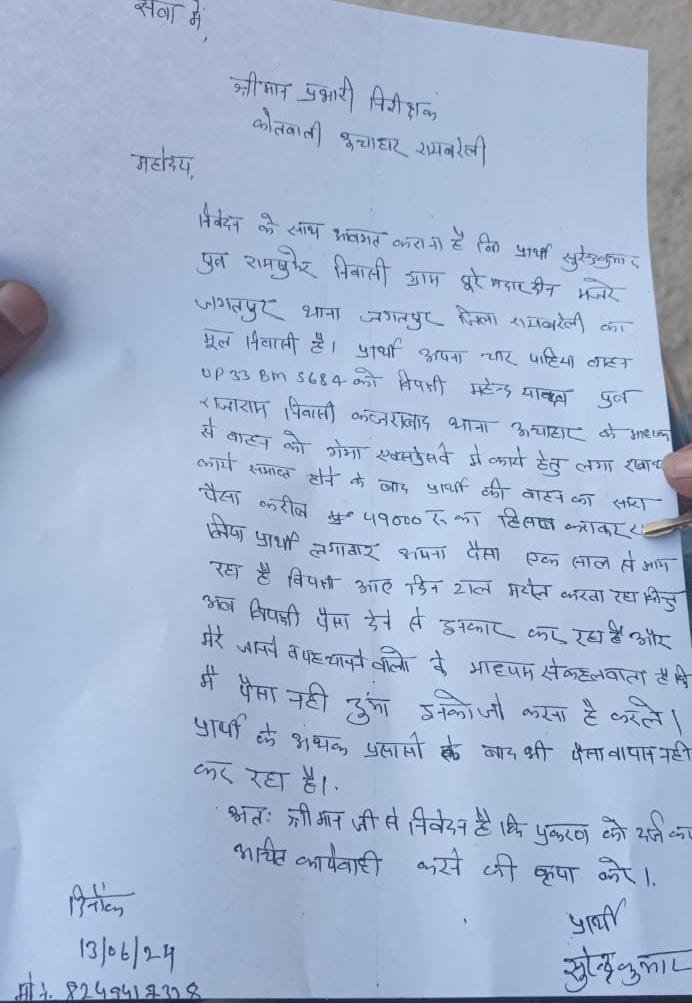 सेवा में,
श्रीमान प्रभारी निरीक्षक
कोतवाली ऊचाहार रायबरेली
महोदय,
निवेदन के साथ अवगत कराना है कि प्रार्थी सुरेन्द्रकुमार
पुत्र निवासी ग्राम पूरे मजरे
जगतपुर थाना जगतपुर जिला रायबरेली का
मूल निवासी है। प्रार्थी अपना चार पहिया वाहन
UP 33 BM 5684 को विपक्षी महेन्द्र यादव पुत्र
राजाराम निवासी थाना ऊचाहार के माध्यम
से वाहन को गंगा एक्सप्रेसवे मे कार्य हेतु लगा रखा था
कार्य समाप्त होने के बाद प्रार्थी की वाहन का सारा
पैसा करीब 49000 रु का हिसाब कराकर
लिया प्रार्थी लगातार अपना पैसा एक साल से मांग
रहा है विपक्षी आए दिन टाल मटोल करता रहा किन्तु
अब विपक्षी पैसा देने से इनकार कर रहा है और
मेरे जानने व पहचानने वालो के माध्यम से कहलवाता है कि
मै पैसा नही दुंगा इनको जो करना है करले।
प्रार्थी के अथक प्रयासो के बाद भी पैसा वापस नही
कर रहा है।
अतः श्रीमान जी से निवेदन है कि प्रकरण को दर्ज कर
उचित कार्यवाही करने की कृपा करे।
दिनाँक
13/06/24
प्रार्थी
सुरेन्द्र कुमार
मो नं.